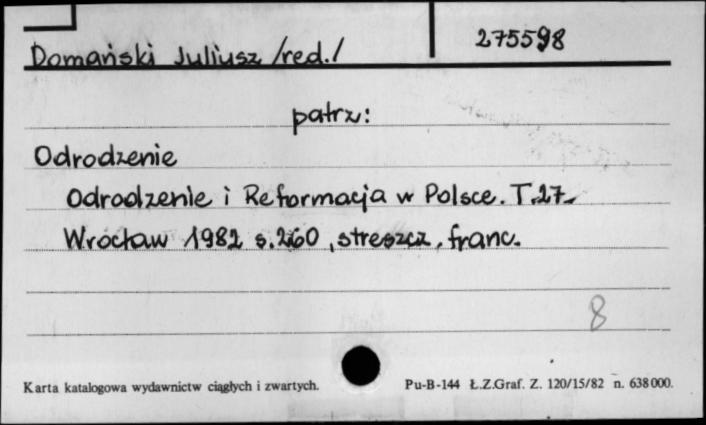 275598
Domański Juliusz /red./
patrz:
Odrodzenie
Odrodzenie i Reformacja w Polsce. T.27.
Wrocław 1982 s.260, streszcz. franc.
8
Karta katalogowa wydawnictw ciągłych i zwartych. Pu-B-144 Ł.Z.Graf. Z. 120/15/82 n. 638000.